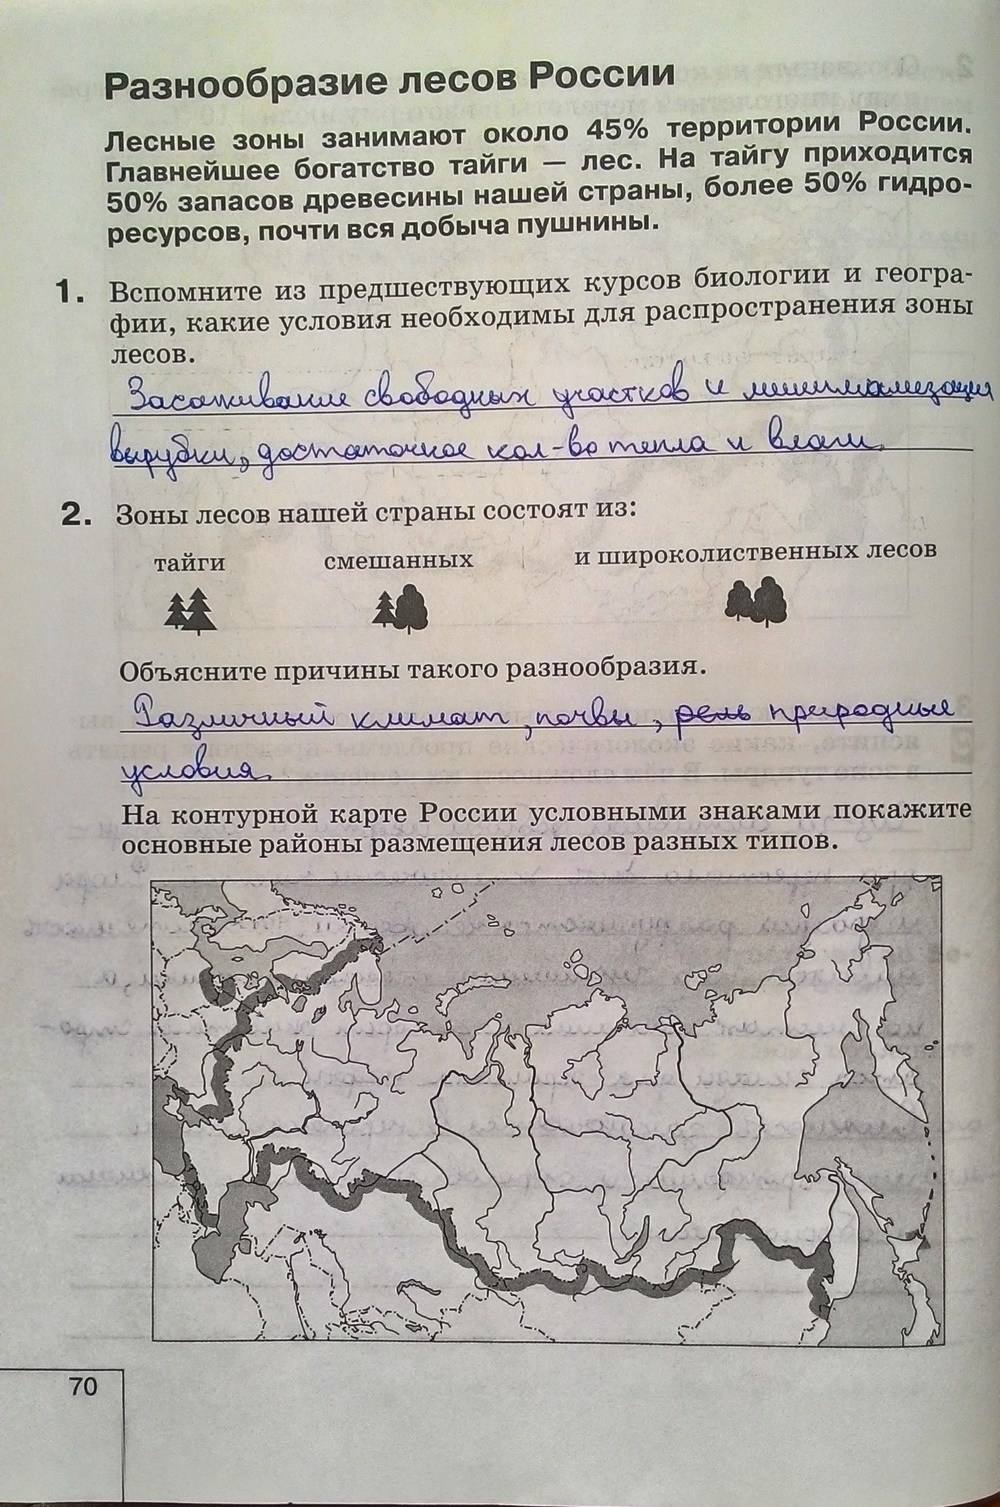 Разнообразие лесов России
Лесные зоны занимают около 45% территории России.
Главнейшее богатство тайги — лес. На тайгу приходится
50% запасов древесины нашей страны, более 50% гидро-
ресурсов, почти вся добыча пушнины.
1. Вспомните из предшествующих курсов биологии и геогра-
фии, какие условия необходимы для распространения зоны
лесов.
Засаживание свободных участков и минимализация
вырубки, достаточное кол-во тепла и влаги.
2. Зоны лесов нашей страны состоят из:
тайги смешанных и широколиственных лесов
Объясните причины такого разнообразия.
Различный климат, почвы, рель природные
условия.
На контурной карте России условными знаками покажите
основные районы размещения лесов разных типов.
70